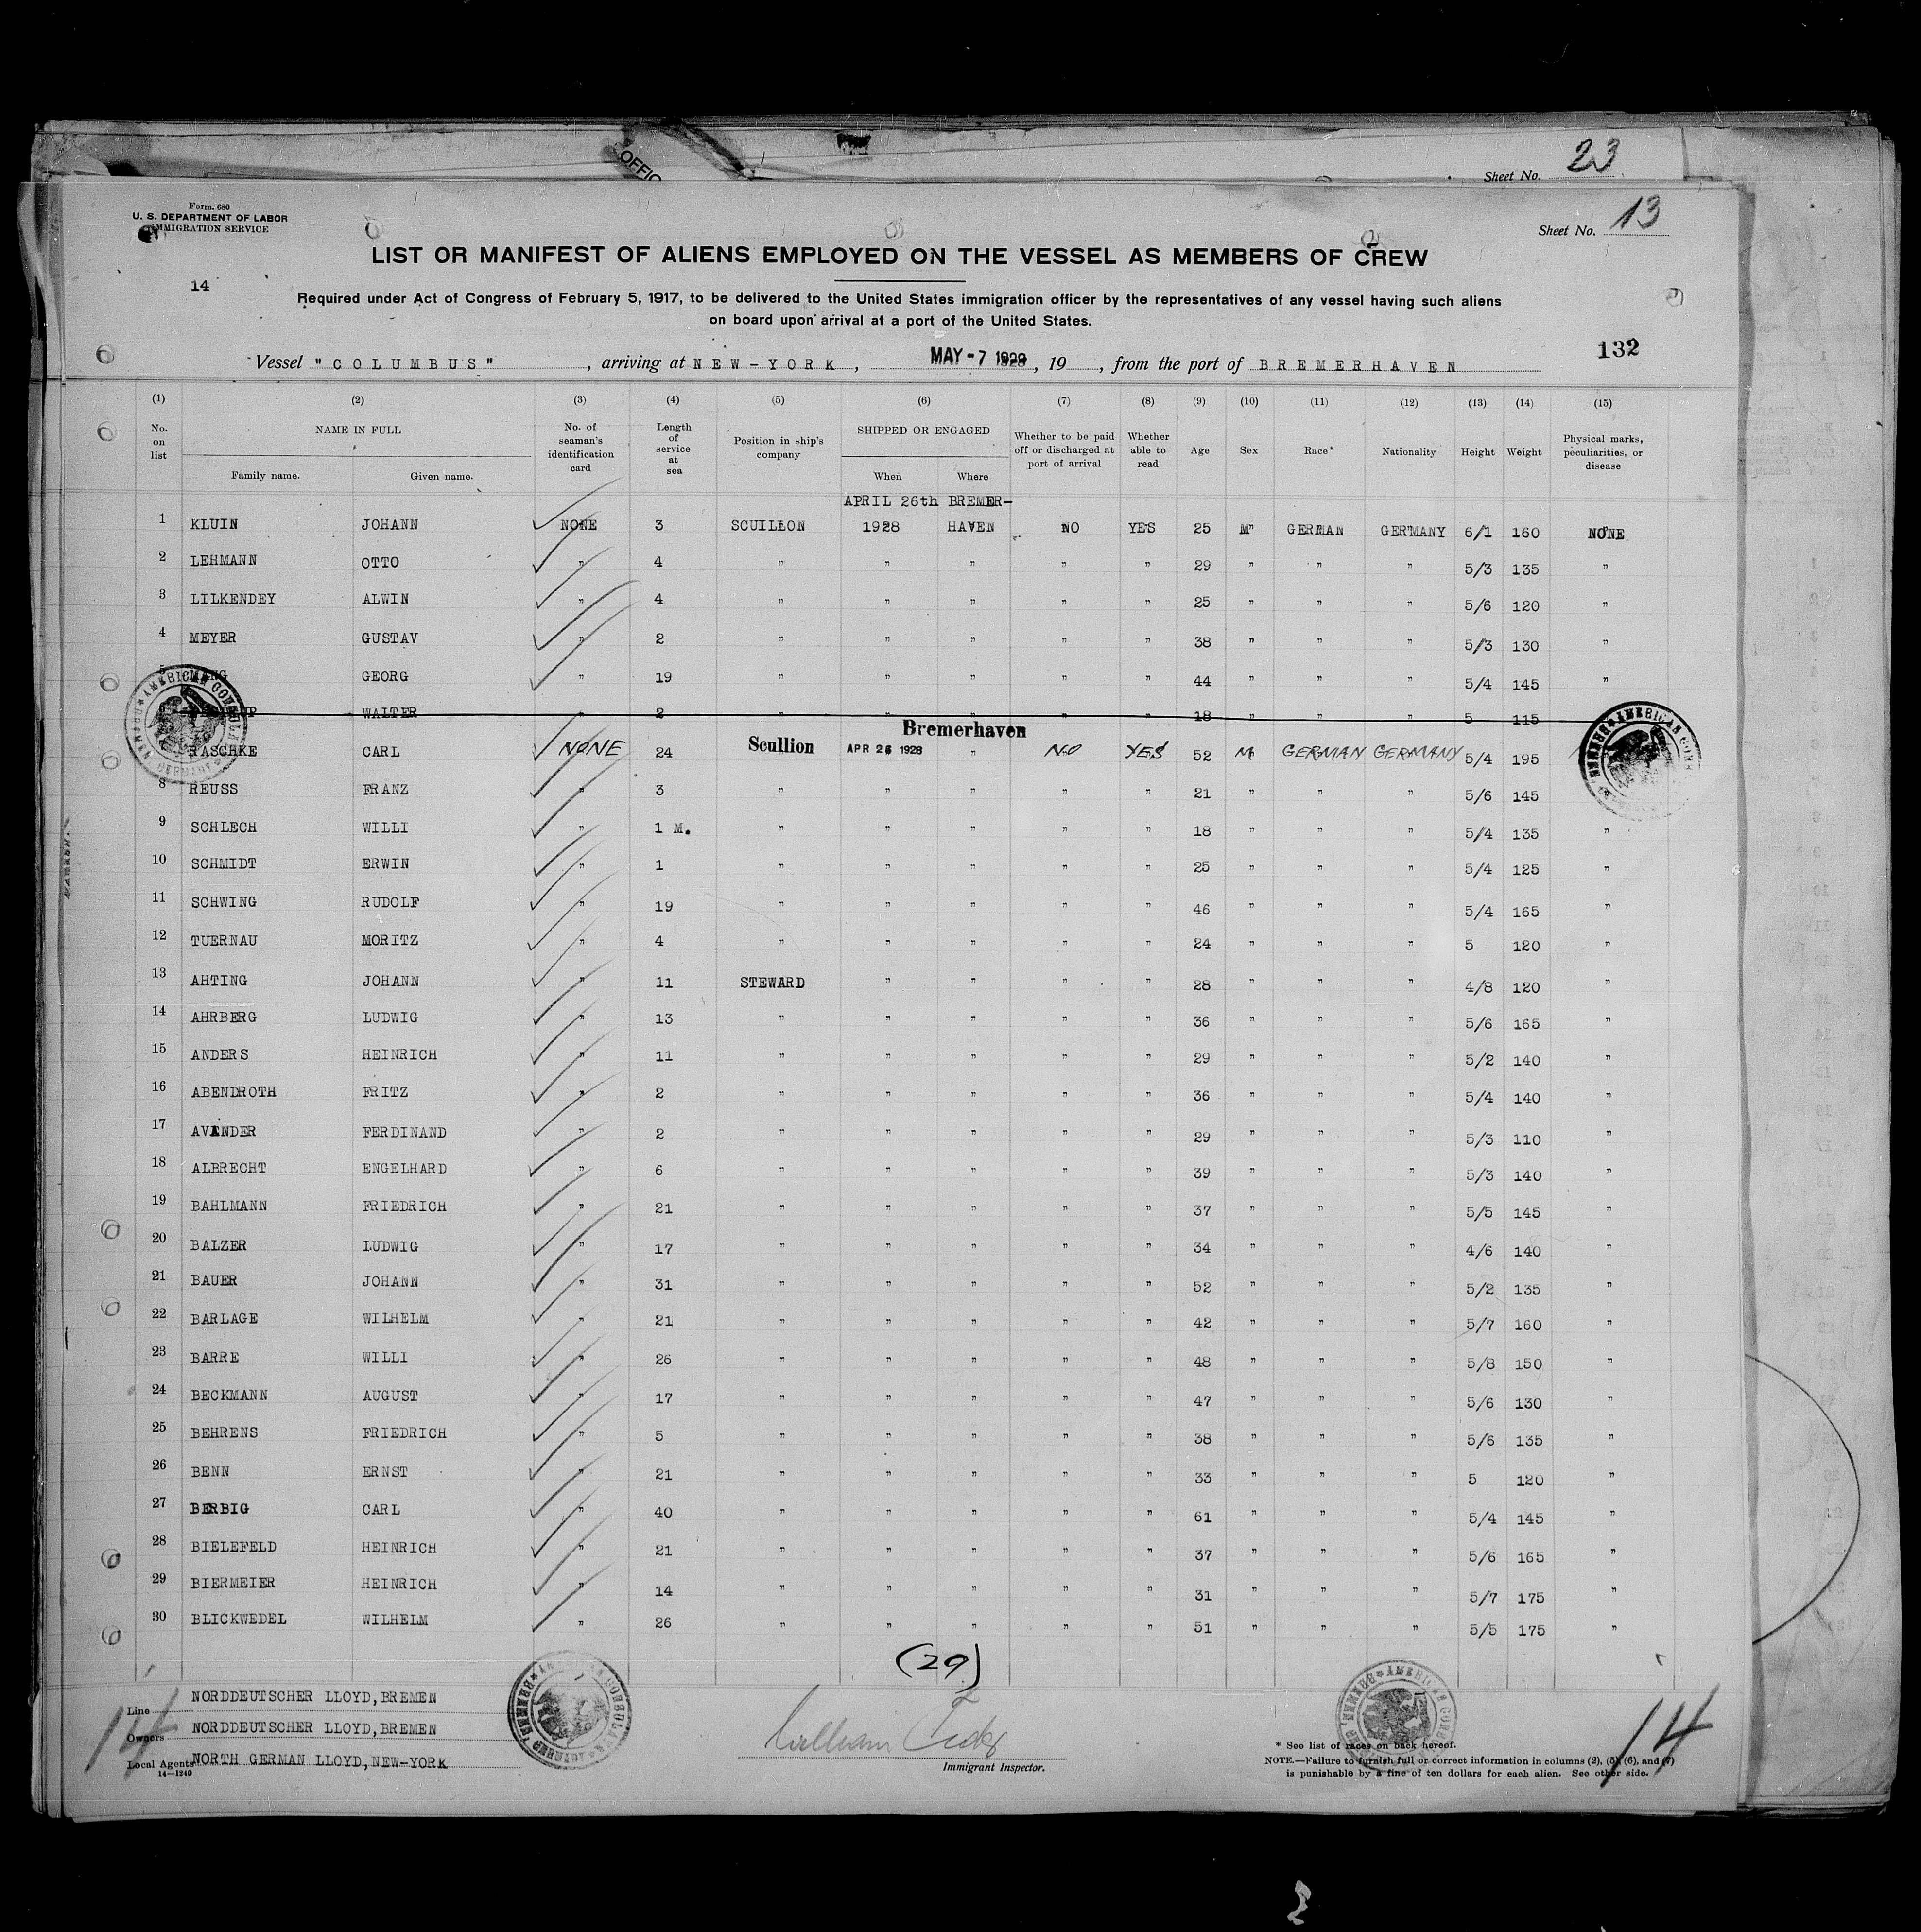 OFFIC
Sheet No. 23
Form. 680
U. S. DEPARTMENT OF LABOR
IMMIGRATION SERVICE
Sheet No. 13
LIST OR MANIFEST OF ALIENS EMPLOYED ON THE VESSEL AS MEMBERS OF CREW
14
Required under Act of Congress of February 5, 1917, to be delivered to the United States immigration officer by the representatives of any vessel having such aliens
on board upon arrival at a port of the United States.
132
Vessel "COLUMBUS", arriving at NEW-YORK, MAY -7 1928, 19 , from the port of BREMERHAVEN
(1) (2) (3) (4) (5) (6) (7) (8) (9) (10) (11) (12) (13) (14) (15)
No. on list NAME IN FULL Family name. Given name. No. of seaman's identification card Length of service at sea Position in ship's company SHIPPED OR ENGAGED When Where Whether to be paid off or discharged at port of arrival Whether able to read Age Sex Race* Nationality Height Weight Physical marks, peculiarities, or disease
APRIL 26th BREMER-
1 KLUIN JOHANN NONE 3 SCUILLON 1928 HAVEN NO YES 25 M GERMAN GERMANY 6/1 160 NONE
2 LEHMANN OTTO " 4 " " " " " 29 " " " 5/3 135 "
3 LILKENDEY ALWIN " 4 " " " " " 25 " " " 5/6 120 "
4 MEYER GUSTAV " 2 " " " " " 38 " " " 5/3 130 "
5 GEORG " 19 " " " " " 44 " " " 5/4 145 "
WALTER " 2 " " " " " 18 " " " 5 115
Bremerhaven
RASCHKE CARL NONE 24 Scullion APR 26 1928 " NO YES 52 M GERMAN GERMANY 5/4 195
8 REUSS FRANZ " 3 " " " " " 21 " " " 5/6 145
9 SCHLECH WILLI " 1 M. " " " " " 18 " " " 5/4 135 "
10 SCHMIDT ERWIN " 1 " " " " " 25 " " " 5/4 125 "
11 SCHWING RUDOLF " 19 " " " " " 46 " " " 5/4 165 "
12 TUERNAU MORITZ " 4 " " " " " 24 " " " 5 120 "
13 AHTING JOHANN " 11 STEWARD " " " " 28 " " " 4/8 120 "
14 AHRBERG LUDWIG " 13 " " " " " 36 " " " 5/6 165 "
15 ANDERS HEINRICH " 11 " " " " " 29 " " " 5/2 140 "
16 ABENDROTH FRITZ " 2 " " " " " 36 " " " 5/4 140 "
17 AVANDER FERDINAND " 2 " " " " " 29 " " " 5/3 110 "
18 ALBRECHT ENGELHARD " 6 " " " " " 39 " " " 5/3 140 "
19 BAHLMANN FRIEDRICH " 21 " " " " " 37 " " " 5/5 145 "
20 BALZER LUDWIG " 17 " " " " " 34 " " " 4/6 140 "
21 BAUER JOHANN " 31 " " " " " 52 " " " 5/2 135 "
22 BARLAGE WILHELM " 21 " " " " " 42 " " " 5/7 160 "
23 BARRE WILLI " 26 " " " " " 48 " " " 5/8 150 "
24 BECKMANN AUGUST " 17 " " " " " 47 " " " 5/6 130 "
25 BEHRENS FRIEDRICH " 5 " " " " " 38 " " " 5/6 135 "
26 BENN ERNST " 21 " " " " " 33 " " " 5 120 "
27 BERBIG CARL " 40 " " " " " 61 " " " 5/4 145 "
28 BIELEFELD HEINRICH " 21 " " " " " 37 " " " 5/6 165 "
29 BIERMEIER HEINRICH " 14 " " " " " 31 " " " 5/7 175 "
30 BLICKWEDEL WILHELM " 26 " " " " " 51 " " " 5/5 175 "
(29)
Line NORDDEUTSCHER LLOYD, BREMEN
Owners NORDDEUTSCHER LLOYD, BREMEN
Local Agents NORTH GERMAN LLOYD, NEW-YORK
14—1240
14
William
Immigrant Inspector.
* See list of races on back hereof.
NOTE.—Failure to furnish full or correct information in columns (2), (5), (6), and (7)
is punishable by a fine of ten dollars for each alien. See other side.
14